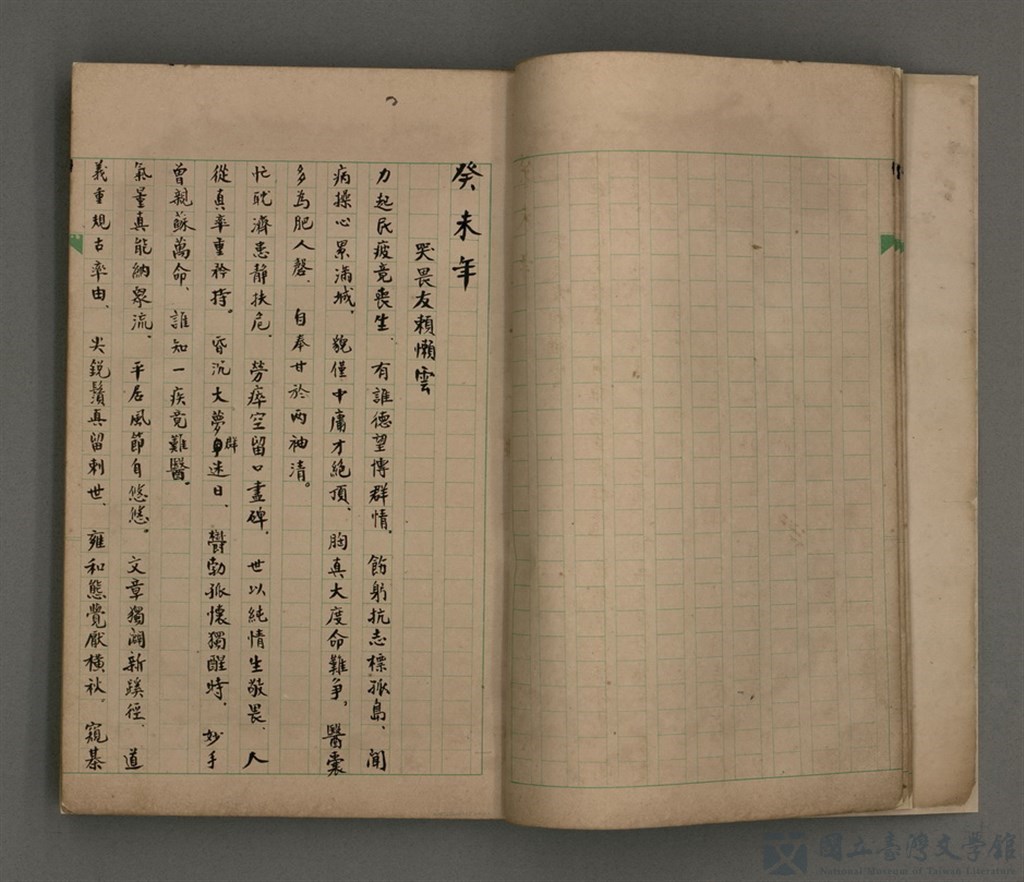 癸未年
哭畏友賴懶雲
力起民疲竟喪生、有誰德望博群情、飭躬抗志標孤島、聞
病操心累滿城。貌僅中庸才絕頂、胸真大度命難爭、醫囊
多為肥人罄、自奉甘於兩袖清。
忙耽濟患靜扶危、勞瘁空留口盡碑、世以純情生敬畏、人
從真率重矜持。昏沉大夢群迷日、鬱勃孤懷獨醒時、妙手
曾親蘇萬命、誰知一疾竟難醫。
氣量真能納眾流、平居風節自悠悠。文章獨闢新蹊徑、道
義重規古率由、尖銳鬚真留刺世、雍和態覺厭橫秋。窺綦
國立臺灣文學館
National Museum of Taiwan Literature